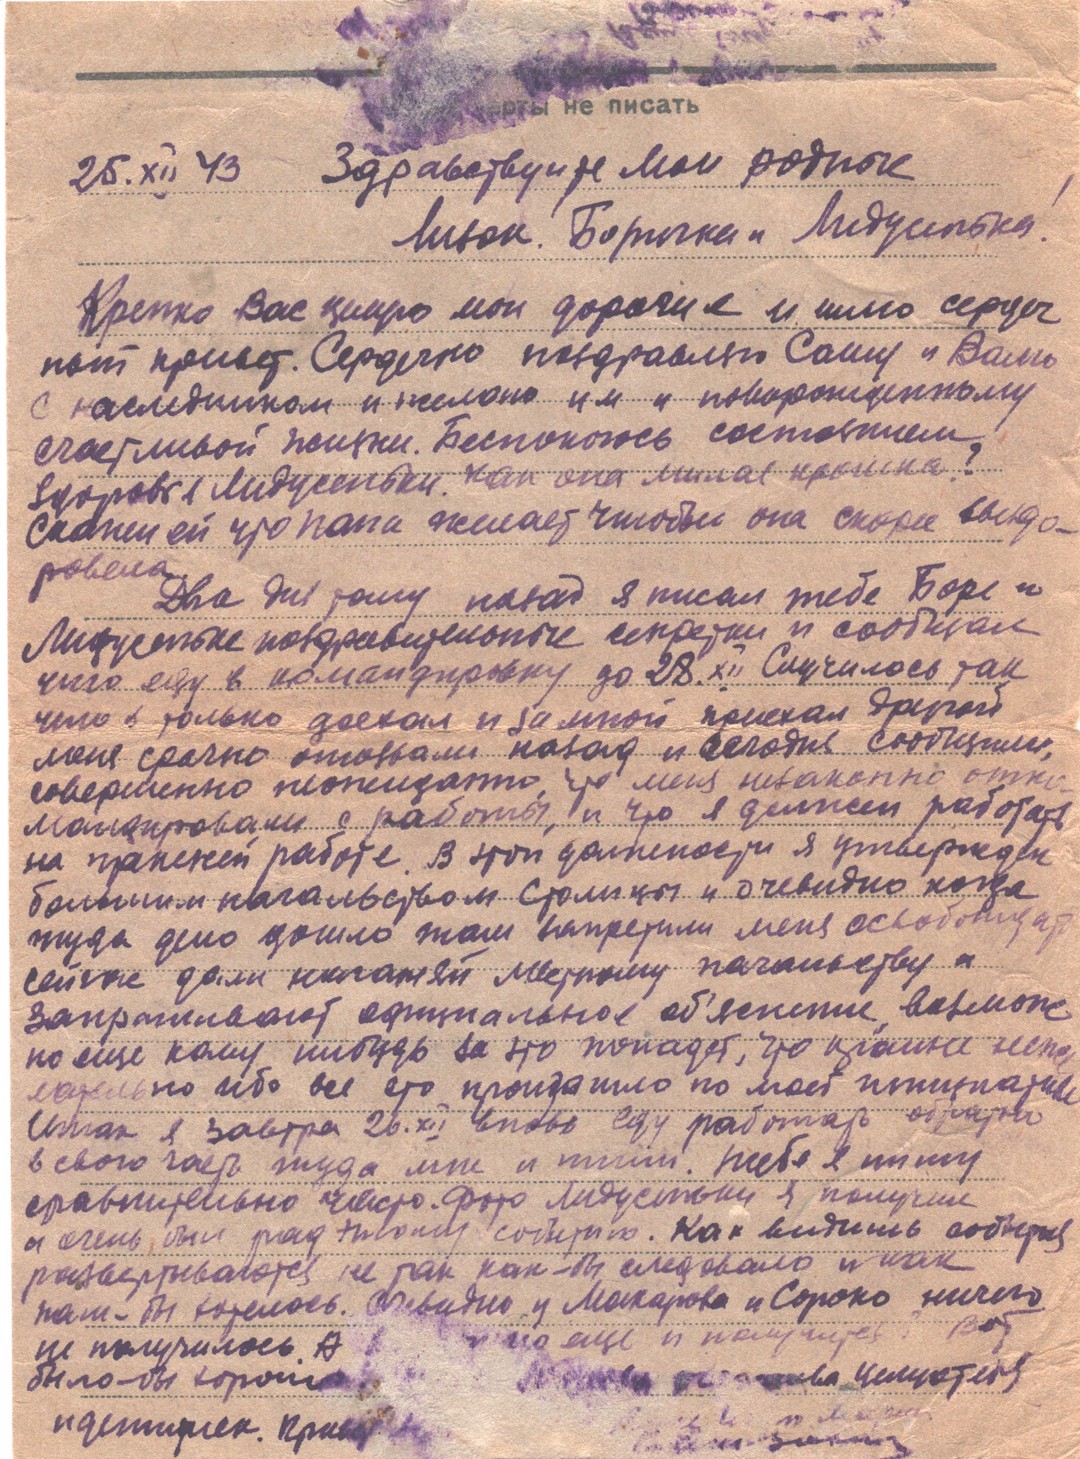 карты не писать
25.XII 43 Здравствуйте мои родные
Лизок, Боричка и Лидусенька!
Крепко Вас целую мои дорогие и шлю сердеч
ный привет. Сердечно поздравляю Сашу и Валю
с наследником и желаю им и новорожденному
счастливой жизни. Беспокоюсь состоянием
здоровья Лидусеньки. Как она милая крошка?
Скажи ей что папа желает чтобы она скорее выздо-
ровела.
Два дня тому назад я писал тебе Боре и
Лидусеньке поздравительные секретки и сообщал
что еду в командировку до 28.XII Случилось так
что я только доехал и за мной приехал другой
меня срочно отозвали назад и сегодня сообщили,
совершенно неожиданно, что меня незаконно отко-
мандировали с работы, и что я должен работать
на прежней работе. В этой должности я утвержден
большим начальством столицы и очевидно когда
туда дело дошло там запретили меня освобождать
сейчас дали нагоняй местному начальству и
запрашивают официальное объяснение, возмож
но еще кому нибудь за это попадет, что крайне неже
лательно ибо все это произошло по моей инициативе
Итак я завтра 26.XII вновь еду работать обратно
в свою часть туда мне и пиши. Тебе я пишу
сравнительно часто. Фото Лидусеньки я получил
и очень был рад этому событию. Как видишь события
развертываются не так как-бы следовало и как
нам-бы хотелось. Очевидно и Макарова и Сороко ничего
не получилось. А но еще и получится? Вот
было-бы хорошо
и детишек. Привет